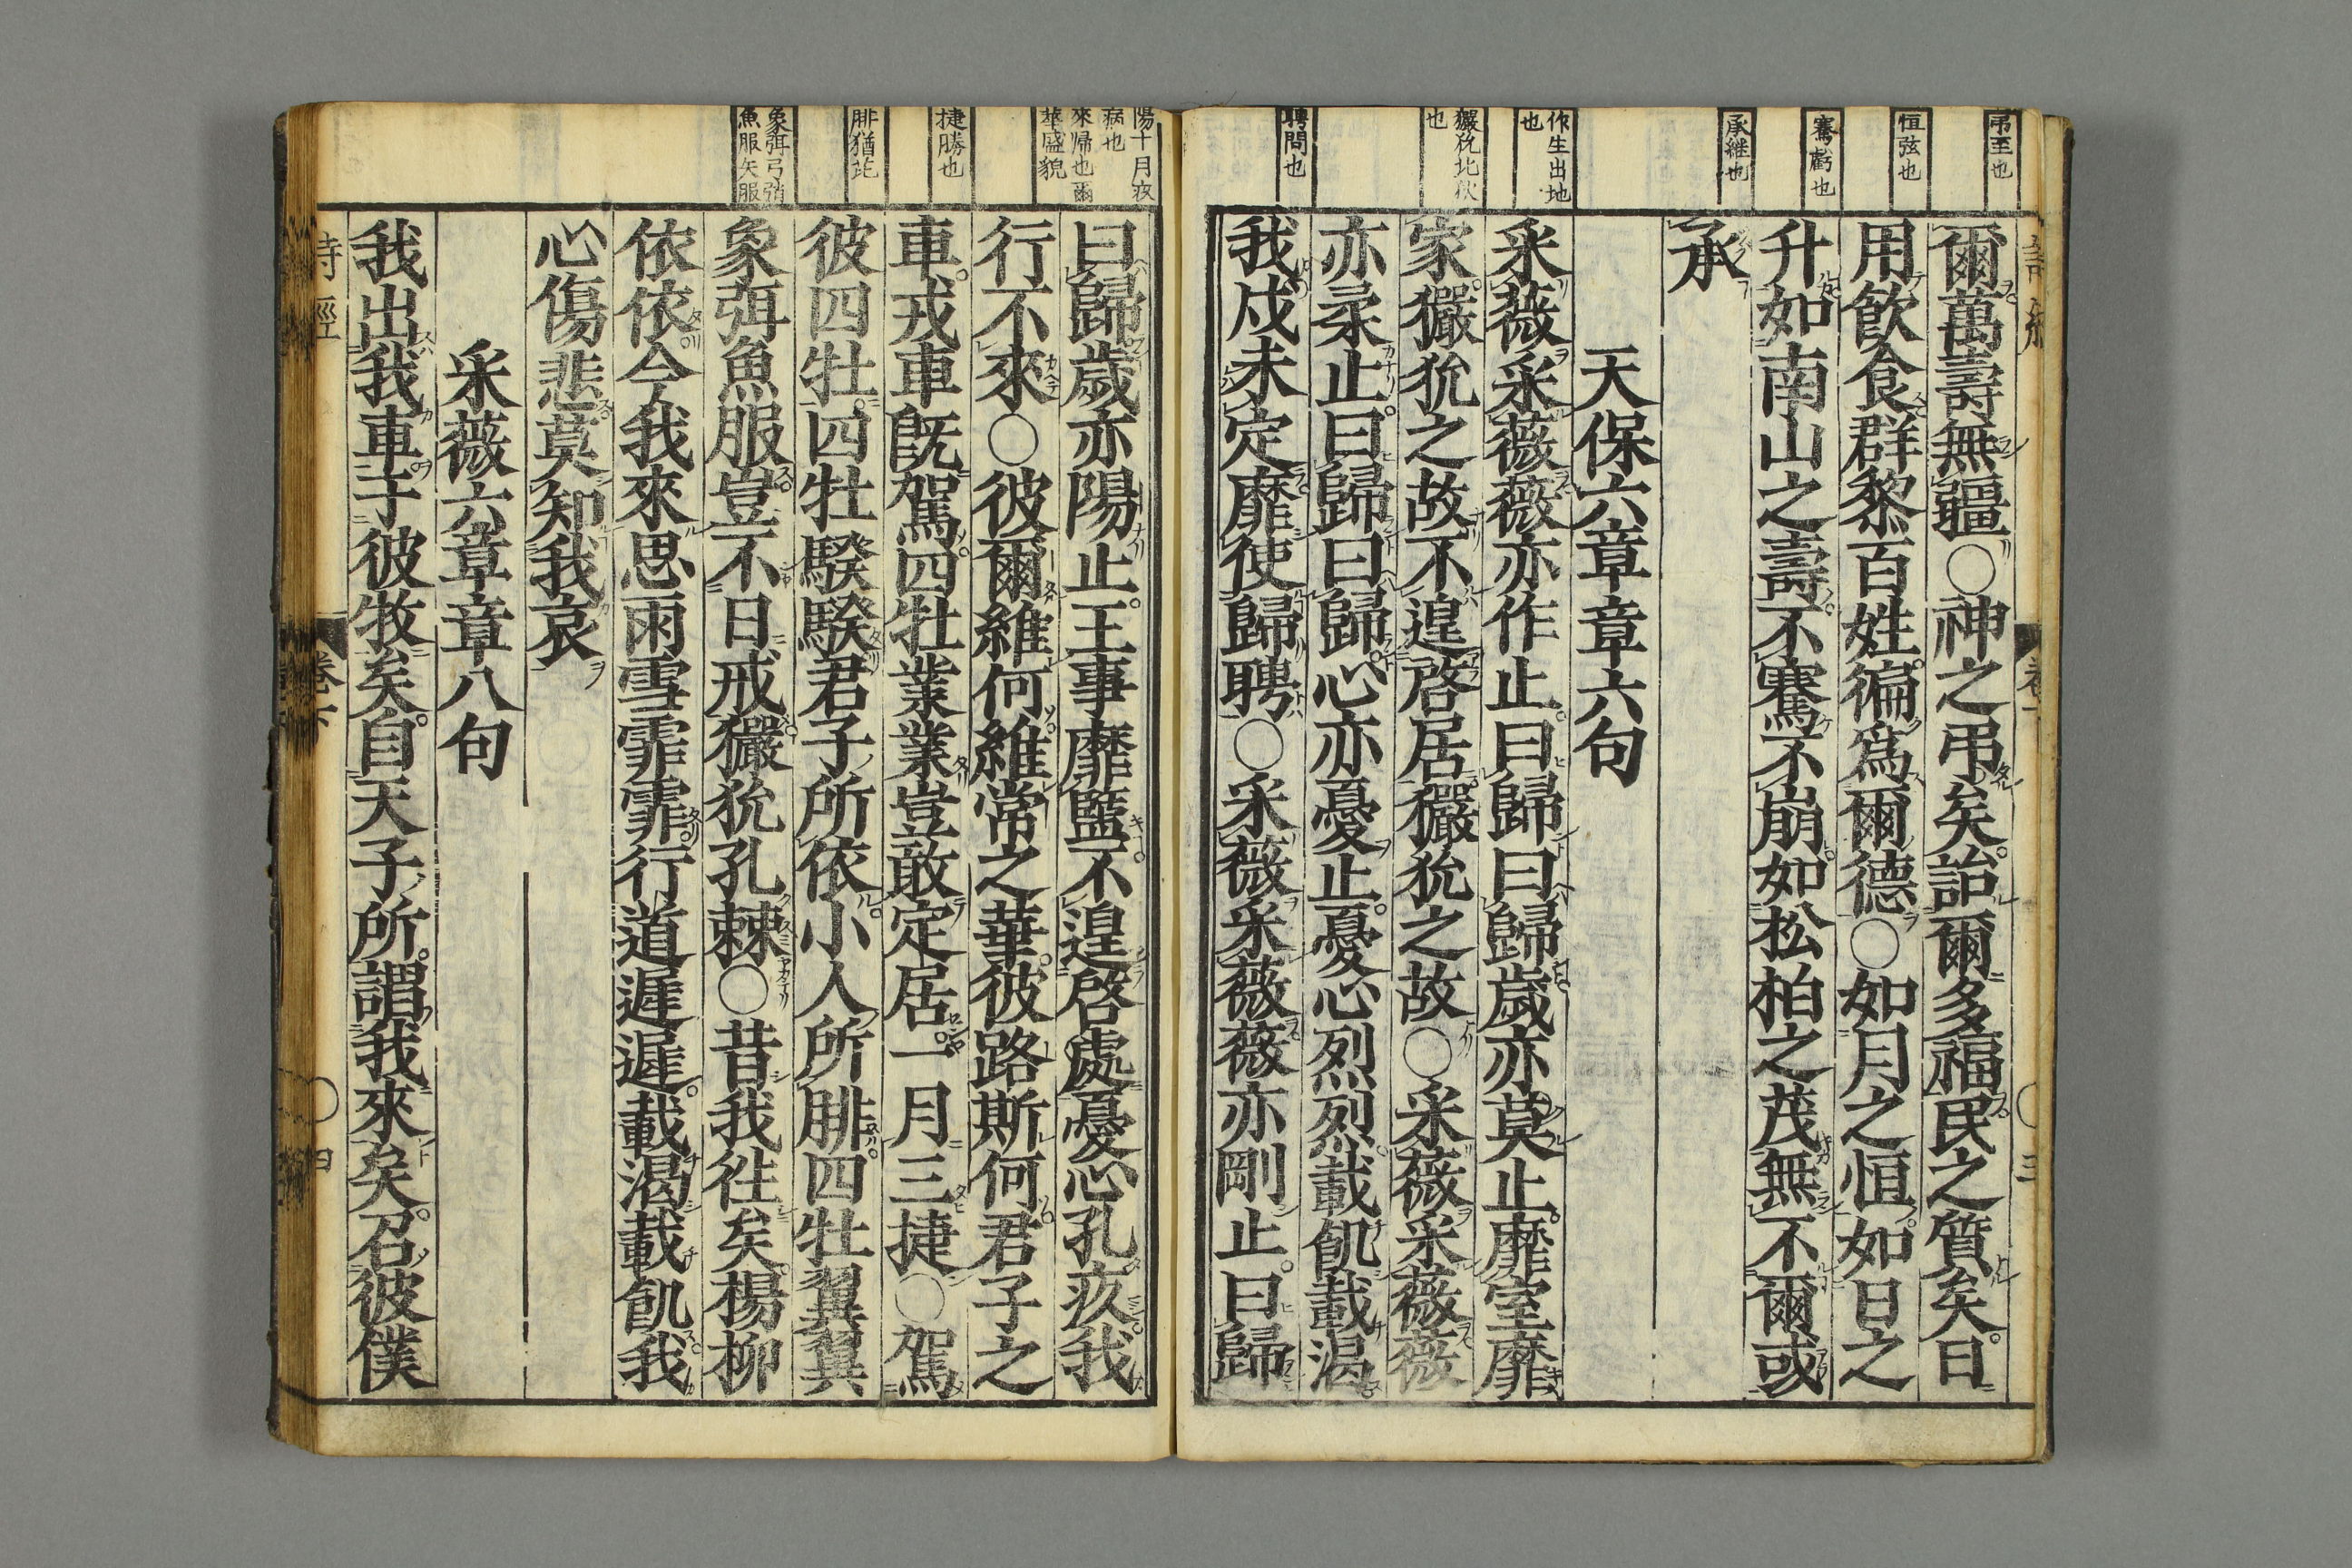 弔至也
恒弦也
騫虧也
承継也
作生出地
也
玁狁北狄
也
聘問也
爾萬壽無疆○神之弔矣詒爾多福民之質矣日
用飲食群黎百姓徧爲爾德○如月之恒如日之
升如南山之壽不騫不崩如松柏之茂無不爾或
承
天保六章章六句
采薇采薇薇亦作止曰歸曰歸歲亦莫止靡室靡
家玁狁之故不遑啓居玁狁之故○采薇采薇薇
亦柔止曰歸曰歸心亦憂止憂心烈烈載飢載渴
我戍未定靡使歸聘○采薇采薇薇亦剛止曰歸
陽十月疚
病也
來帰也爾
華盛貌
捷勝也
腓猶芘
象弭弓弰
魚服矢服
曰歸歲亦陽止王事靡盬不遑啓處憂心孔疚我
行不來○彼爾維何維常之華彼路斯何君子之
車戎車既駕四牡業業豈敢定居一月三捷○駕
彼四牡四牡騤騤君子所依小人所腓四牡翼翼
象弭魚服豈不日戒玁狁孔棘○昔我徃矣楊柳
依依今我來思雨雪霏霏行道遲遲載渴載飢我
心傷悲莫知我哀
采薇六章章八句
我出我車于彼牧矣自天子所謂我來矣召彼僕
詩經
卷下
四